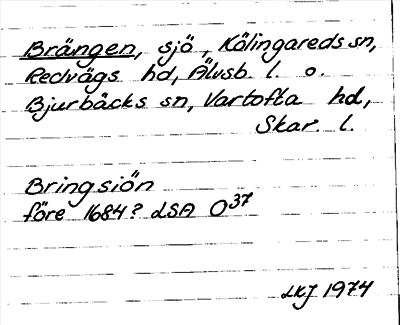 Brängen, sjö, Kölingareds sn,
Redvägs hd, Älvsb. l. o.
Bjurbäcks sn, Vartofta hd,
Skar. l.
Bringsiön
före 1684? LSA O37
LKJ 1974